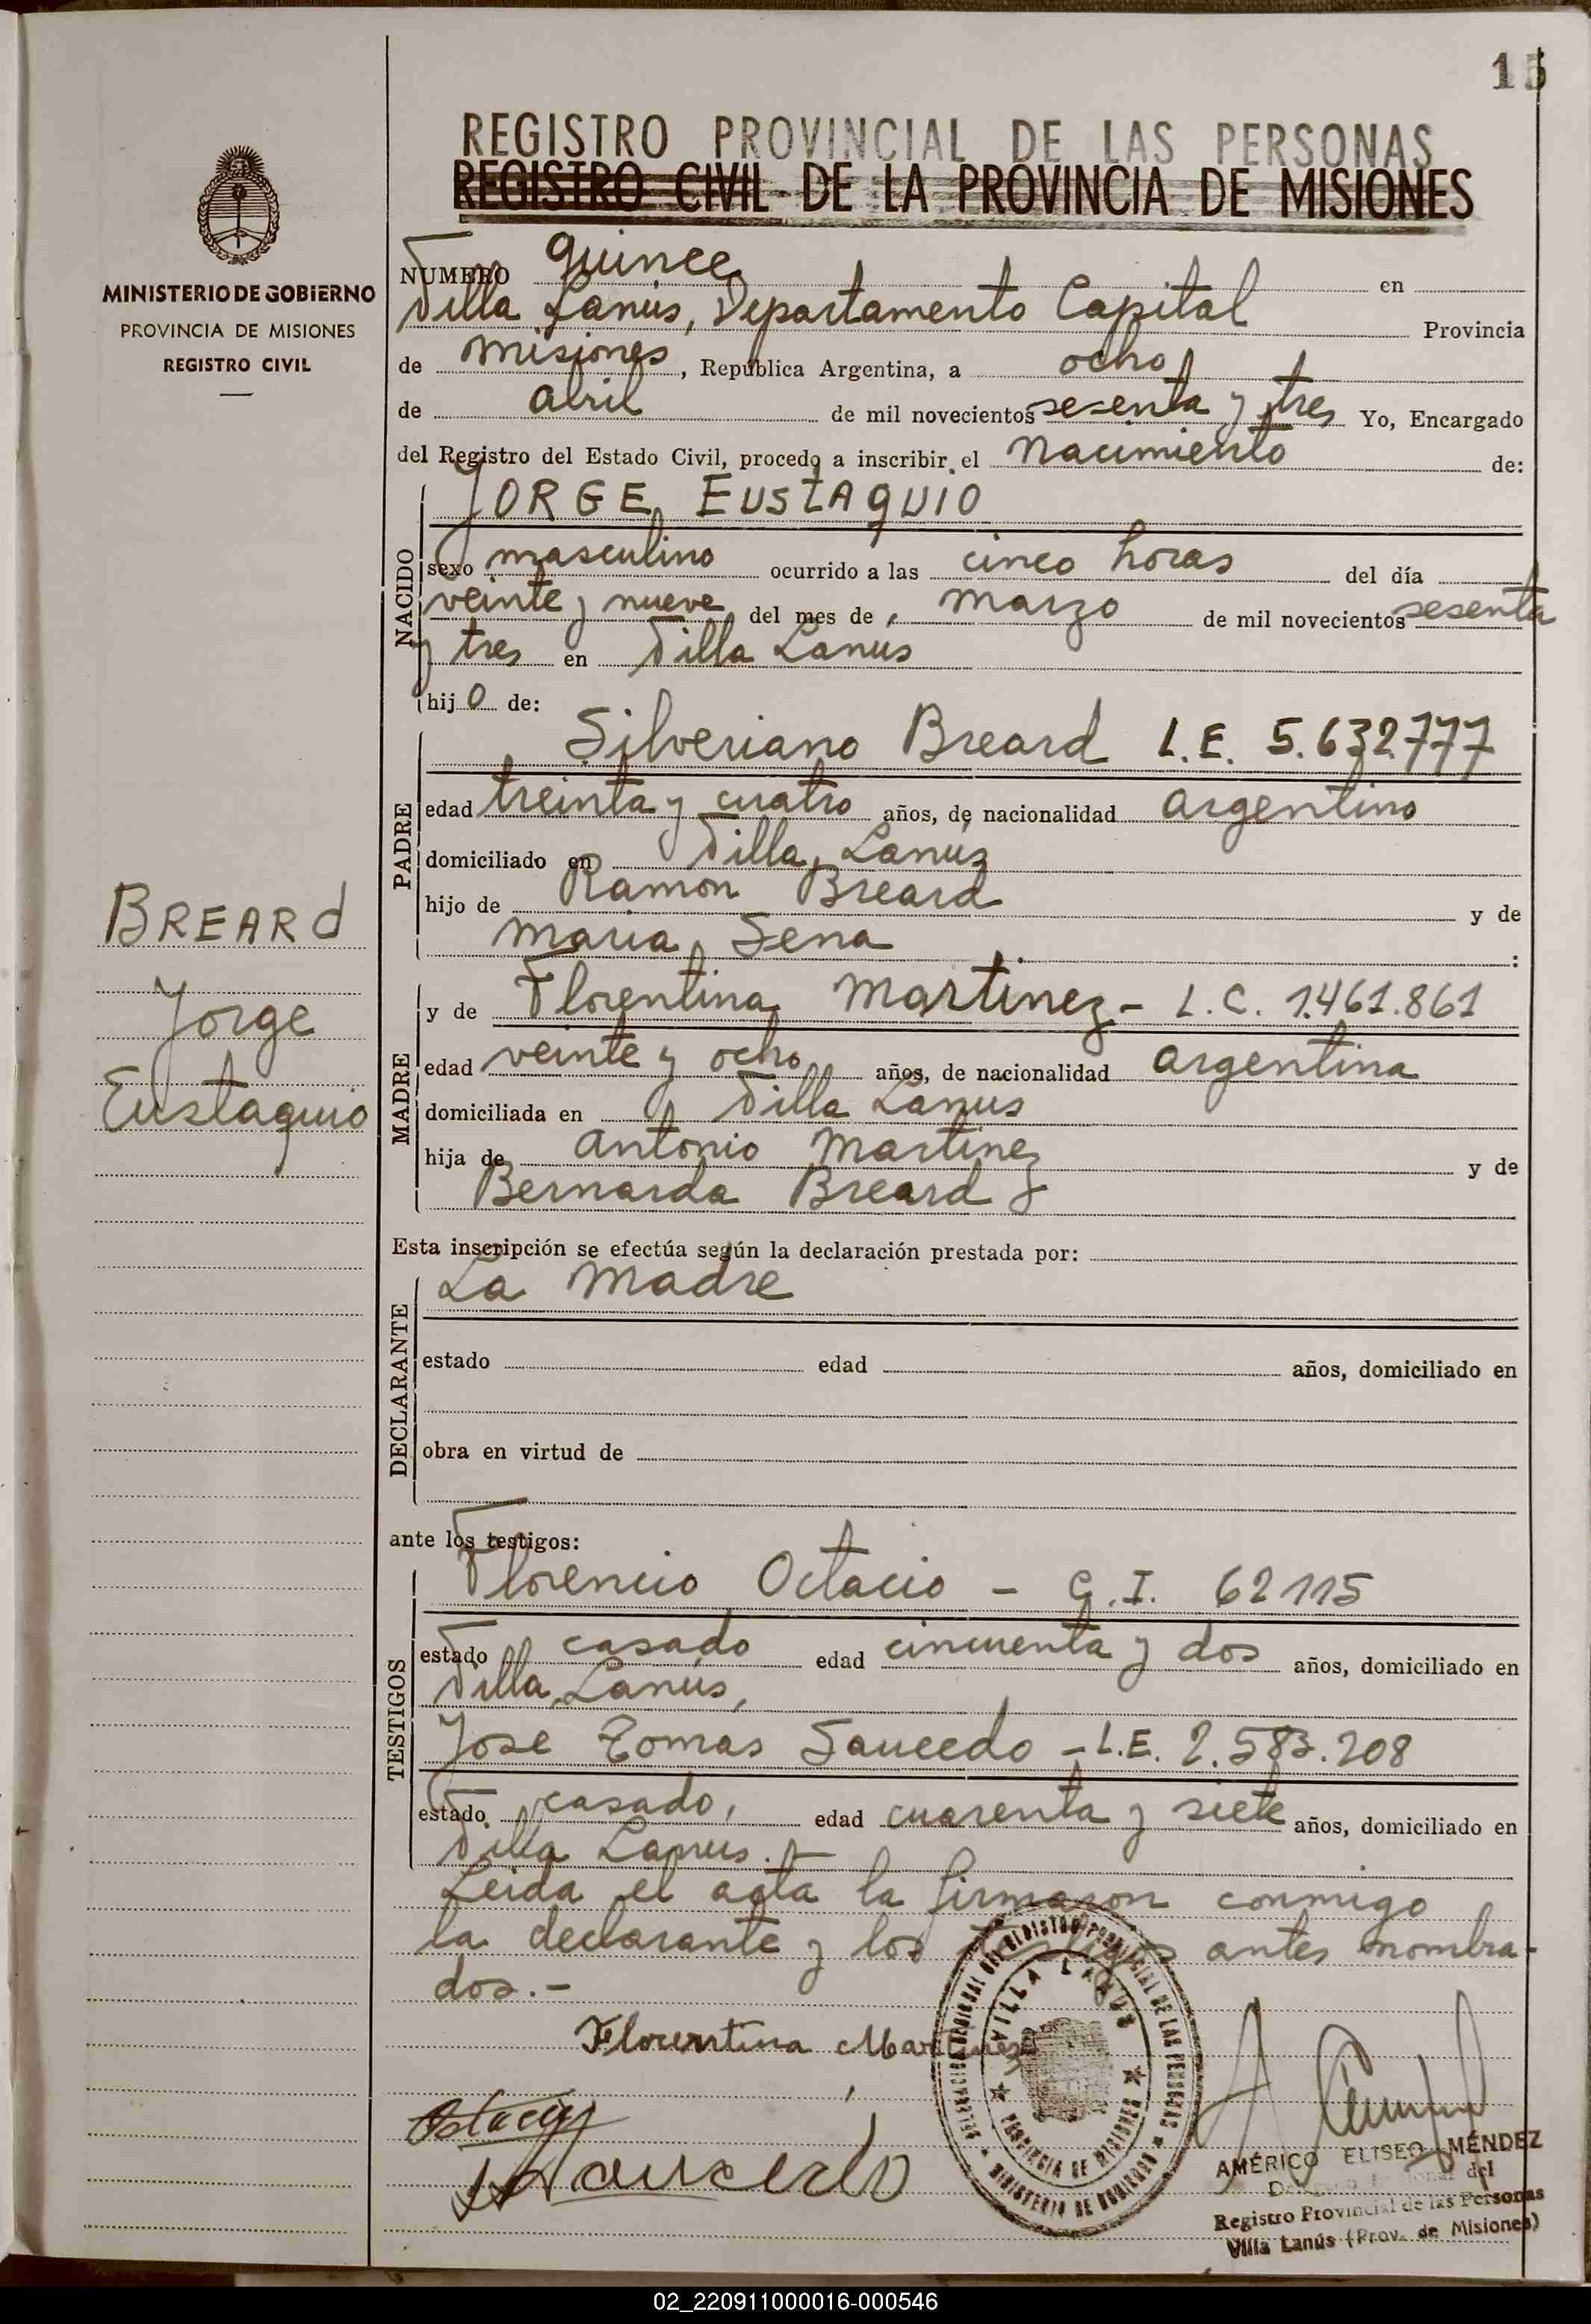 15
REGISTRO PROVINCIAL DE LAS PERSONAS
REGISTRO CIVIL DE LA PROVINCIA DE MISIONES
MINISTERIO DE GOBIERNO
PROVINCIA DE MISIONES
REGISTRO CIVIL
NUMERO quince en
Villa Lanús, Departamento Capital Provincia
de Misiones, República Argentina, a ocho
de abril de mil novecientos sesenta y tres Yo, Encargado
del Registro del Estado Civil, procedo a inscribir el Nacimiento de:
NACIDO
JORGE EUSTAQUIO
sexo masculino ocurrido a las cinco horas del día
veinte y nueve del mes de marzo de mil novecientos sesenta
y tres en Villa Lanus
hijo de:
PADRE
Silveriano Breard L.E. 5.632.777
edad treinta y cuatro años, de nacionalidad argentino
domiciliado en Villa Lanús
hijo de Ramón Breard y de
Maria Sena :
BREARd
Jorge
Eustaquio
MADRE
y de Florentina Martinez - L.C. 1.461.861
edad veinte y ocho años, de nacionalidad argentina
domiciliada en Villa Lanus
hija de Antonio Martinez y de
Bernarda Breard
Esta inscripción se efectúa según la declaración prestada por:
DECLARANTE
La Madre
estado edad años, domiciliado en
obra en virtud de
ante los testigos:
TESTIGOS
Florencio Octacio - C.I. 62115
estado casado edad cincuenta y dos años, domiciliado en
Villa Lanús,
Jose Tomas Saucedo - L.E. 2.583.208
estado casado, edad cuarenta y siete años, domiciliado en
Villa Lanus.
Leida el acta la firmaron conmigo
la declarante y los testigos antes nombra-
dos.-
Florentina Martinez
Saucedo
VILLA LANUS
PROVINCIA DE MISIONES
MINISTERIO DE GOBIERNO
AMÉRICO ELISEO MÉNDEZ
del
Registro Provincial de las Personas
Villa Lanús (Prov. de Misiones)
02_220911000016-000546